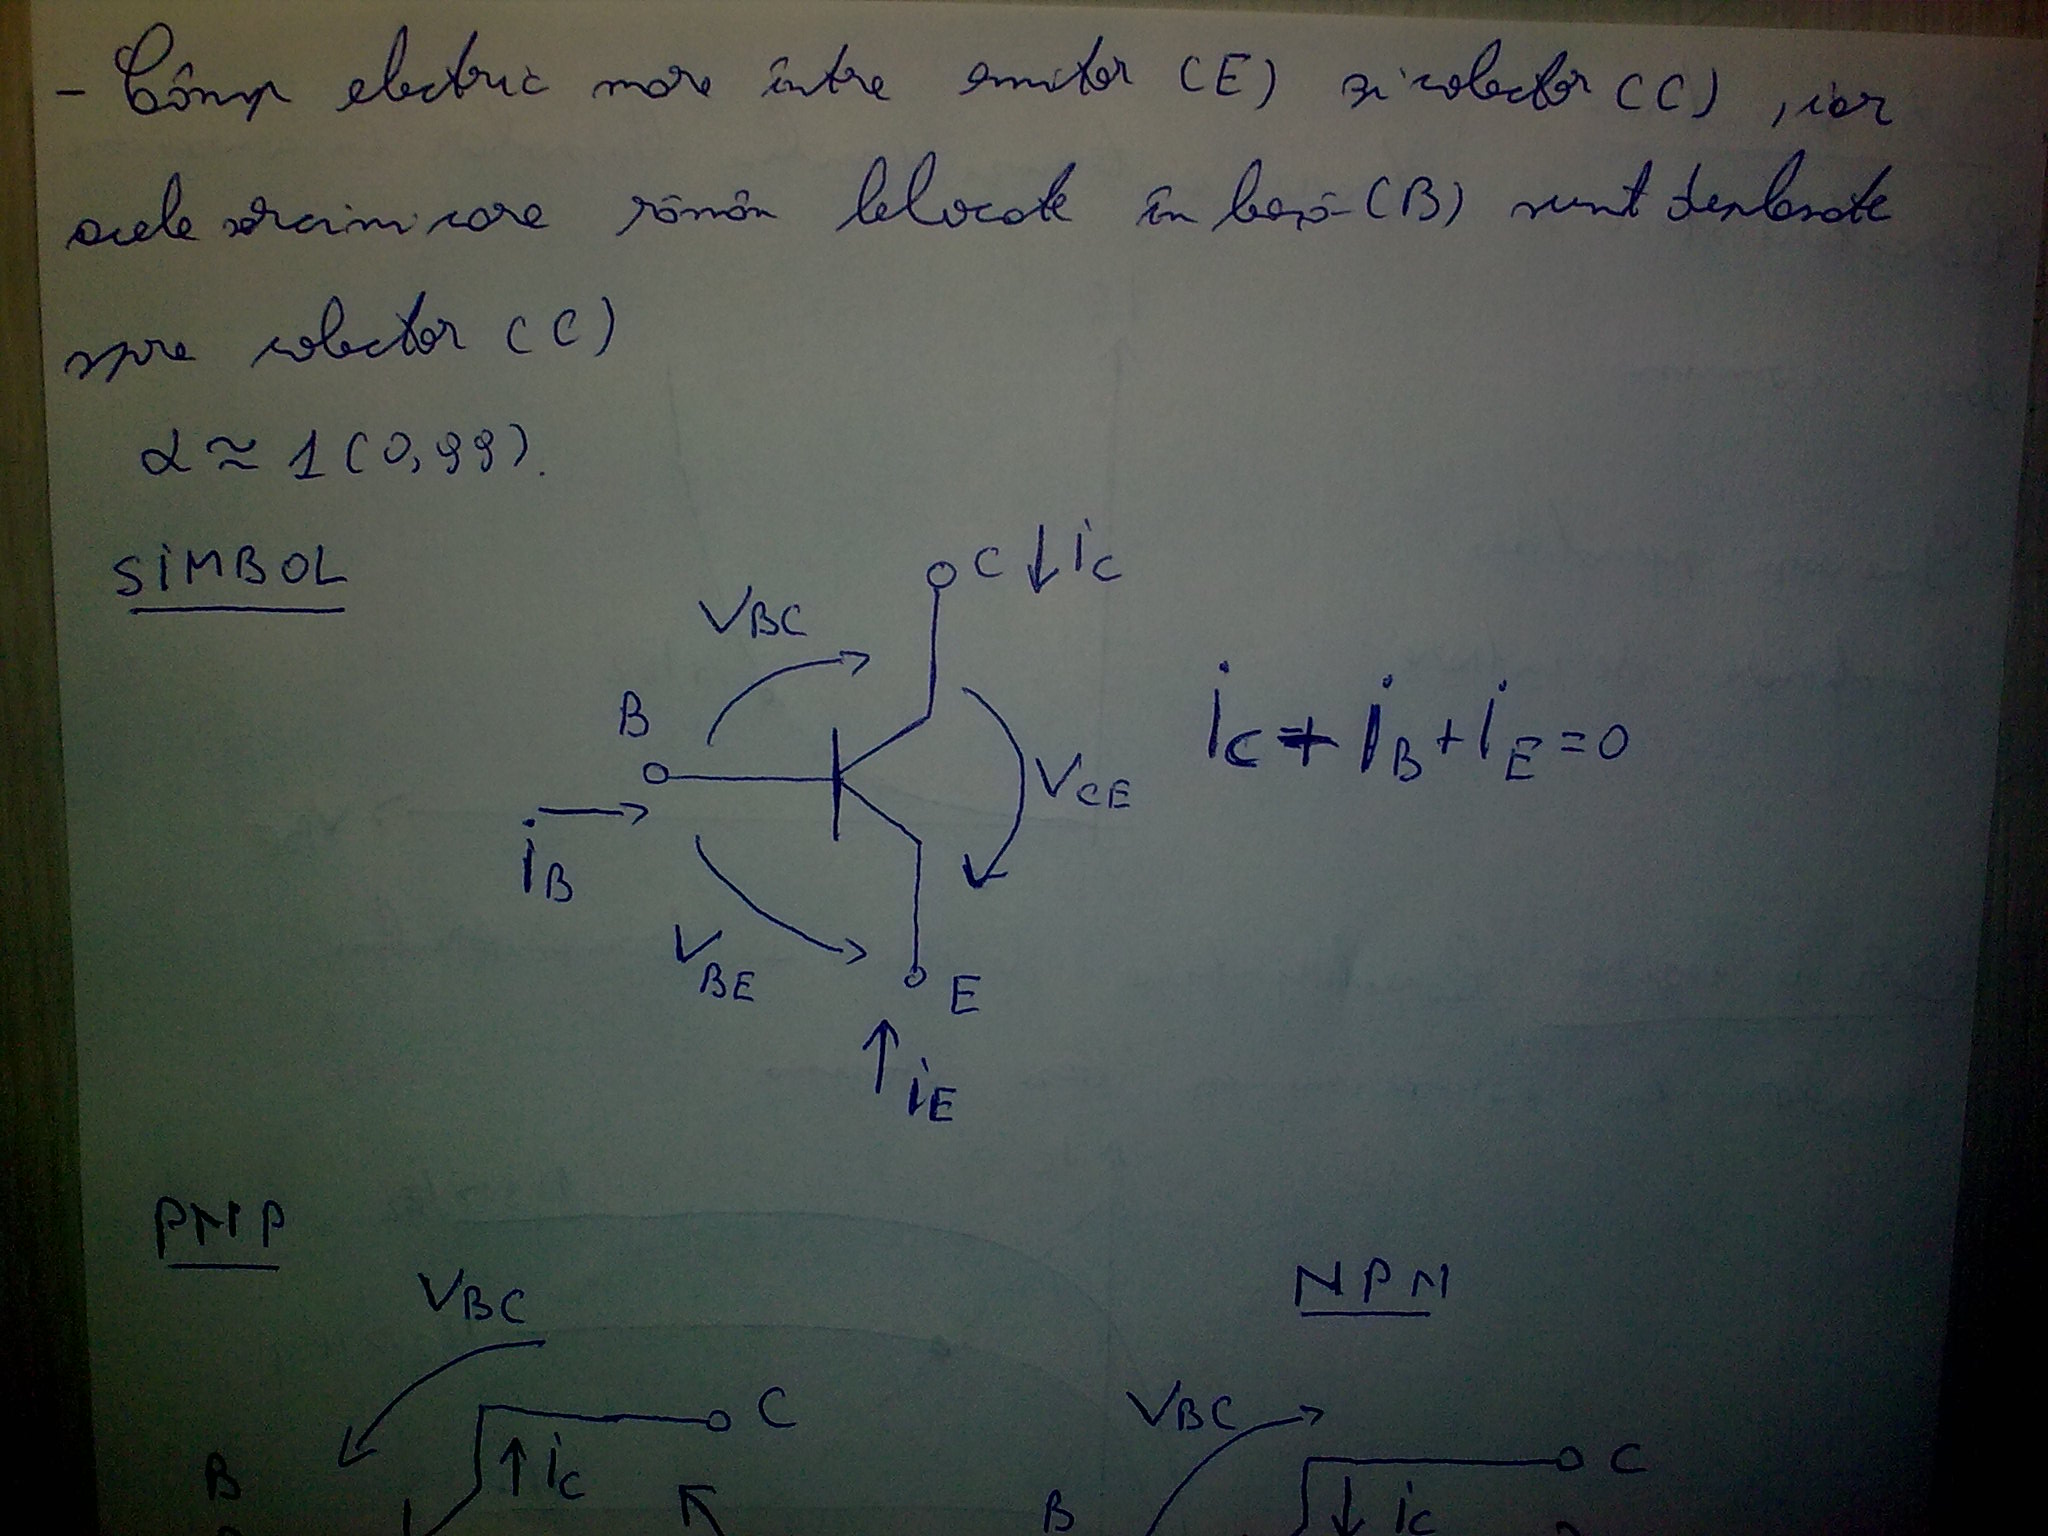 - Câmp electric mare între emitor (E) si colector (C), iar
acele sarcini care rămân blocate în bază (B) sunt deplasate
spre colector (C)
α ≈ 1 (0,99).
SIMBOL
C ↓ iC
VBC
B
iC + iB + iE = 0
VCE
iB
VBE
E
↑ iE
PNP
NPN
VBC
C
VBC
↑ iC
C
B
B
↓ iC